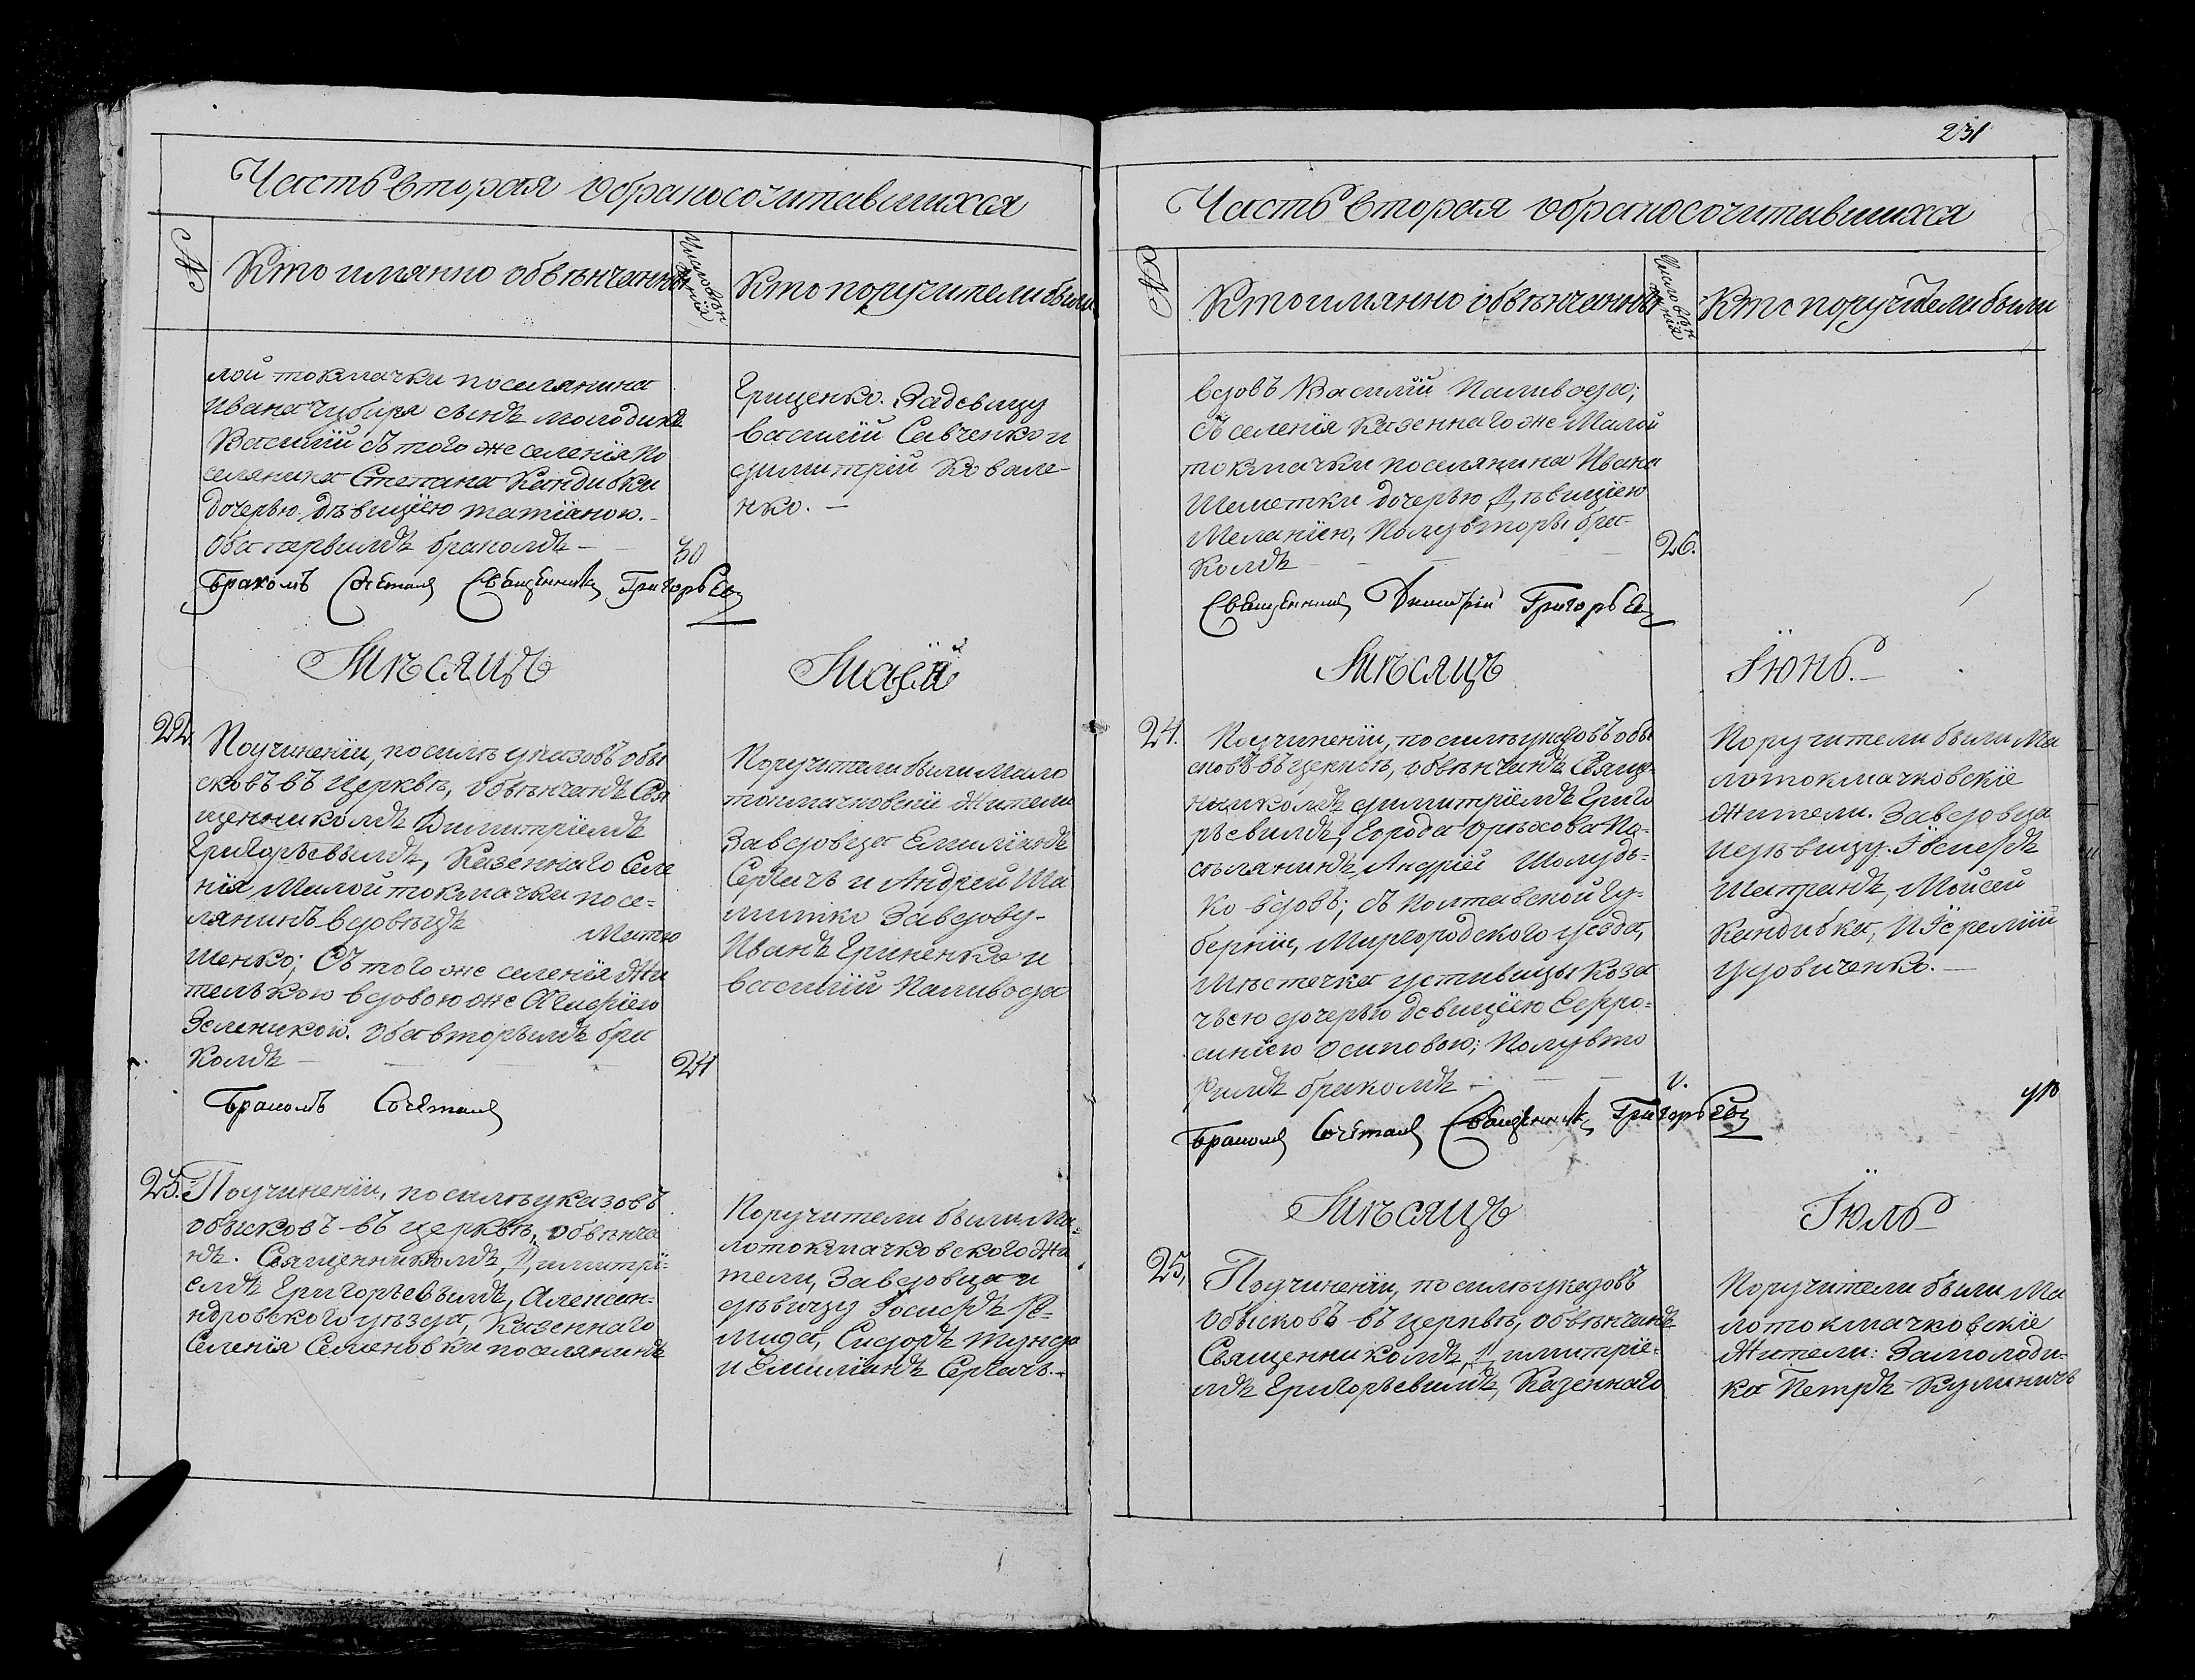 Часть вторая о бракосочитавшихся
№
Кто имянно обвѣнчанны
Число вѣн
чанія
Кто поручители были
лой токмачки поселянина
Ивана Чубиря сынъ молодикъ
Василій съ того же селенія по
селянина Степана Кандибки
дочерью дѣвиціею татіаною.
Оба первымъ бракомъ —
30
Гриценко. Задевицу
василій Савченко и
димитрій Ковале-
нко. —
Бракомъ Сочеталъ Священникъ Григорьевъ
Мѣсяцъ
Маій
22.
По учиненіи, по силѣ указовъ обы
сковъ въ церквѣ, обвѣнчанъ Свя
щенникомъ Димитріемъ
Григорьевымъ, Казеннаго Селе
нія Малой токмачки посе-
лянинъ вдовецъ Матю
шенко; Съ того же селенія жи
телькою вдовою же
Зеленикою. Оба вторымъ бра
комъ —
24
Поручители были мало
токмачковскіи жители
За вдовца Емиліянъ
Сергачъ и Андрей Ша
митко За вдову-
Иванъ Гриненко и
василій Паливода
Бракомъ Сочеталъ
23.
По учиненіи, по силѣ указовъ
обысковъ въ церквѣ, обвѣнча
нъ. Священникомъ, Димитрі-
емъ Григорьевымъ, Алексан-
ндровского уѣзда, Казеннаго
Селенія Семеновки поселянинъ
Поручители были Ма-
лотокмачковского жи
тели, За вдовца и
дѣвицу Іосифъ Ре-
мида, Сидоръ тунда
и Емиліянъ Сергачъ. —
231
Часть вторая о бракосочитавшихся
№
Кто имянно обвѣнчанны
Число вѣн
чанія
Кто поручители были
вдовъ Василій Паливода;
Съ селенія Казеннаго же Малой
токмачки поселянина Ивана
Шеметки дочерью дѣвицію
Меланіею, Полувторы бра-
комъ —
26.
Священникъ Димитрій Григорьевъ
Мѣсяцъ
Іюнь. —
24.
По учиненіи, по силѣ указовъ обы
сковъ въ церквѣ, обвѣнчанъ Свящ-
нникомъ димитріемъ Григо
рьевымъ, Города Орѣхова По-
сѣлянинъ Андрій Шолудь-
ко вдовъ; съ Полтавской Гу-
берніи, Миргородского уезда,
Мѣстечка устивицы Коза
чьею дочерью девицію Ефро-
синіею Осиповою; Полувто
римъ бракомъ —
Поручители были Ма
лотокмачковскіе
жители. За вдовца
Іосифъ
Шапранъ, Мойсей
Кандибка, И Іеремій
Удовиченко. —
Бракомъ Сочеталъ Священникъ Григорьевъ
Мѣсяцъ
Іюль
25,
По учиненіи, по силѣ указовъ
Обысковъ въ церквѣ, обвѣнчанъ
Священникомъ, Димитріе-
мъ Григорьевымъ, Казеннаго
Поручители были Ма
лотокмачковскіе
жители: За молоди-
ка Петръ Куличичъ